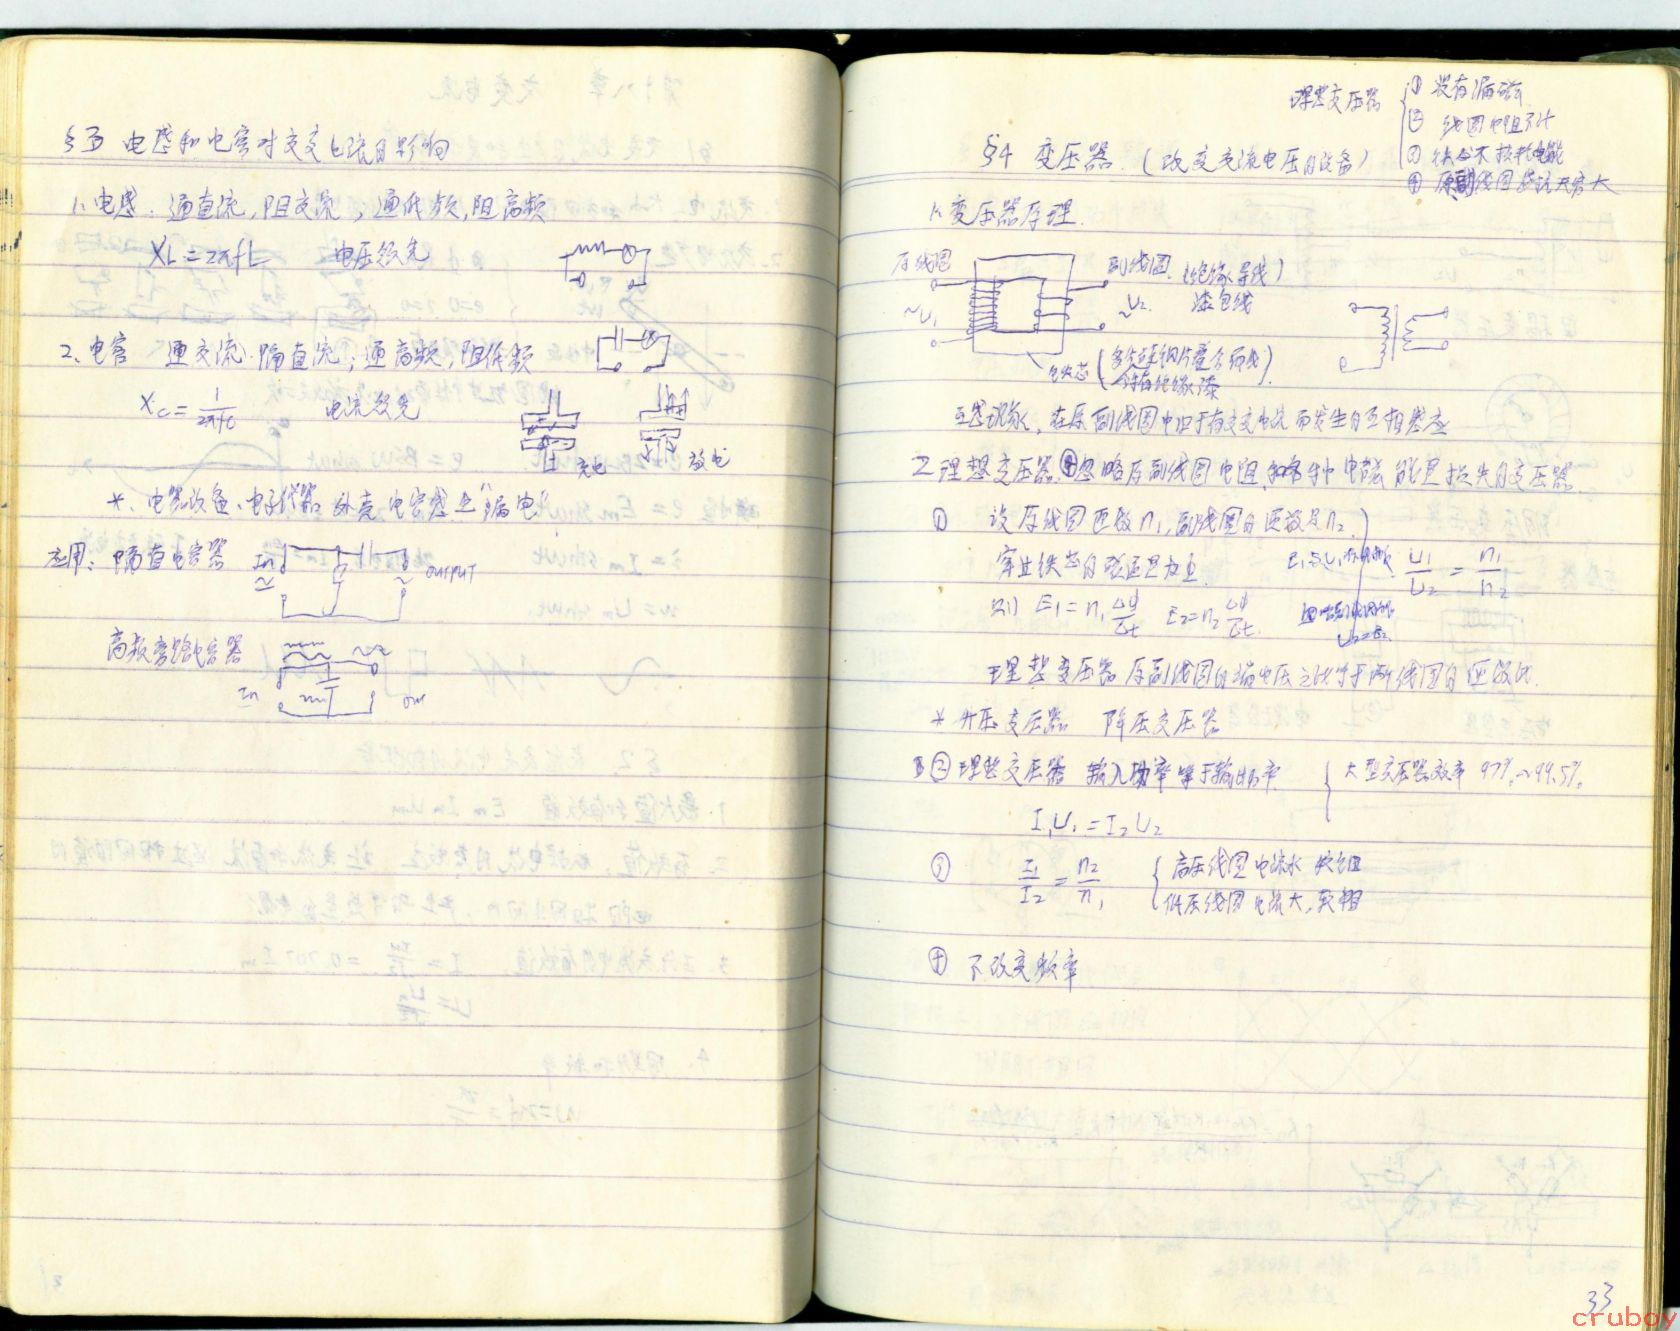 §3 电感和电容对交变电流的影响
1. 电感: 通直流,阻交流,通低频,阻高频
XL=2πfL 电压领先
2、电容 通交流.隔直流,通高频,阻低频
Xc= 1/2πfc 电流领先
充电 放电
*、电器设备、电子仪器 外壳 电容感应"漏电"
应用: 隔直电容器 In OUTPUT
高频旁路电容器
In Out
理想变压器 ① 没有漏磁
② 线圈电阻不计
③ 铁心不损耗电能
④ 原副线圈感抗无穷大
§4 变压器.(改变交流电压的设备)
1.变压器原理.
原线圈 副线圈.(绝缘导线)
~U1 ~U2. 漆包线
铁芯
互感现象,在原副线圈中由于有交变电流而发生的互相感应
2 理想变压器 忽略原副线圈电阻 电能能量损失的变压器.
① 设原线圈匝数n1,副线圈的匝数是n2.
穿过铁芯的磁通量为Φ.
U1/U2 = n1/n2
则 E1=n1 ΔΦ/Δt E2=n2 ΔΦ/Δt.
U2=E2
理想变压器原副线圈的端电压之比等于两线圈的匝数比.
* 升压变压器 降压变压器
② 理想变压器 输入功率等于输出功率. 大型变压器效率 97%~99.5%.
I1U1=I2U2
③ I1/I2 = n2/n1 高压线圈电流小 较细
低压线圈电流大,较粗
④ 不改变频率
33
cruboy